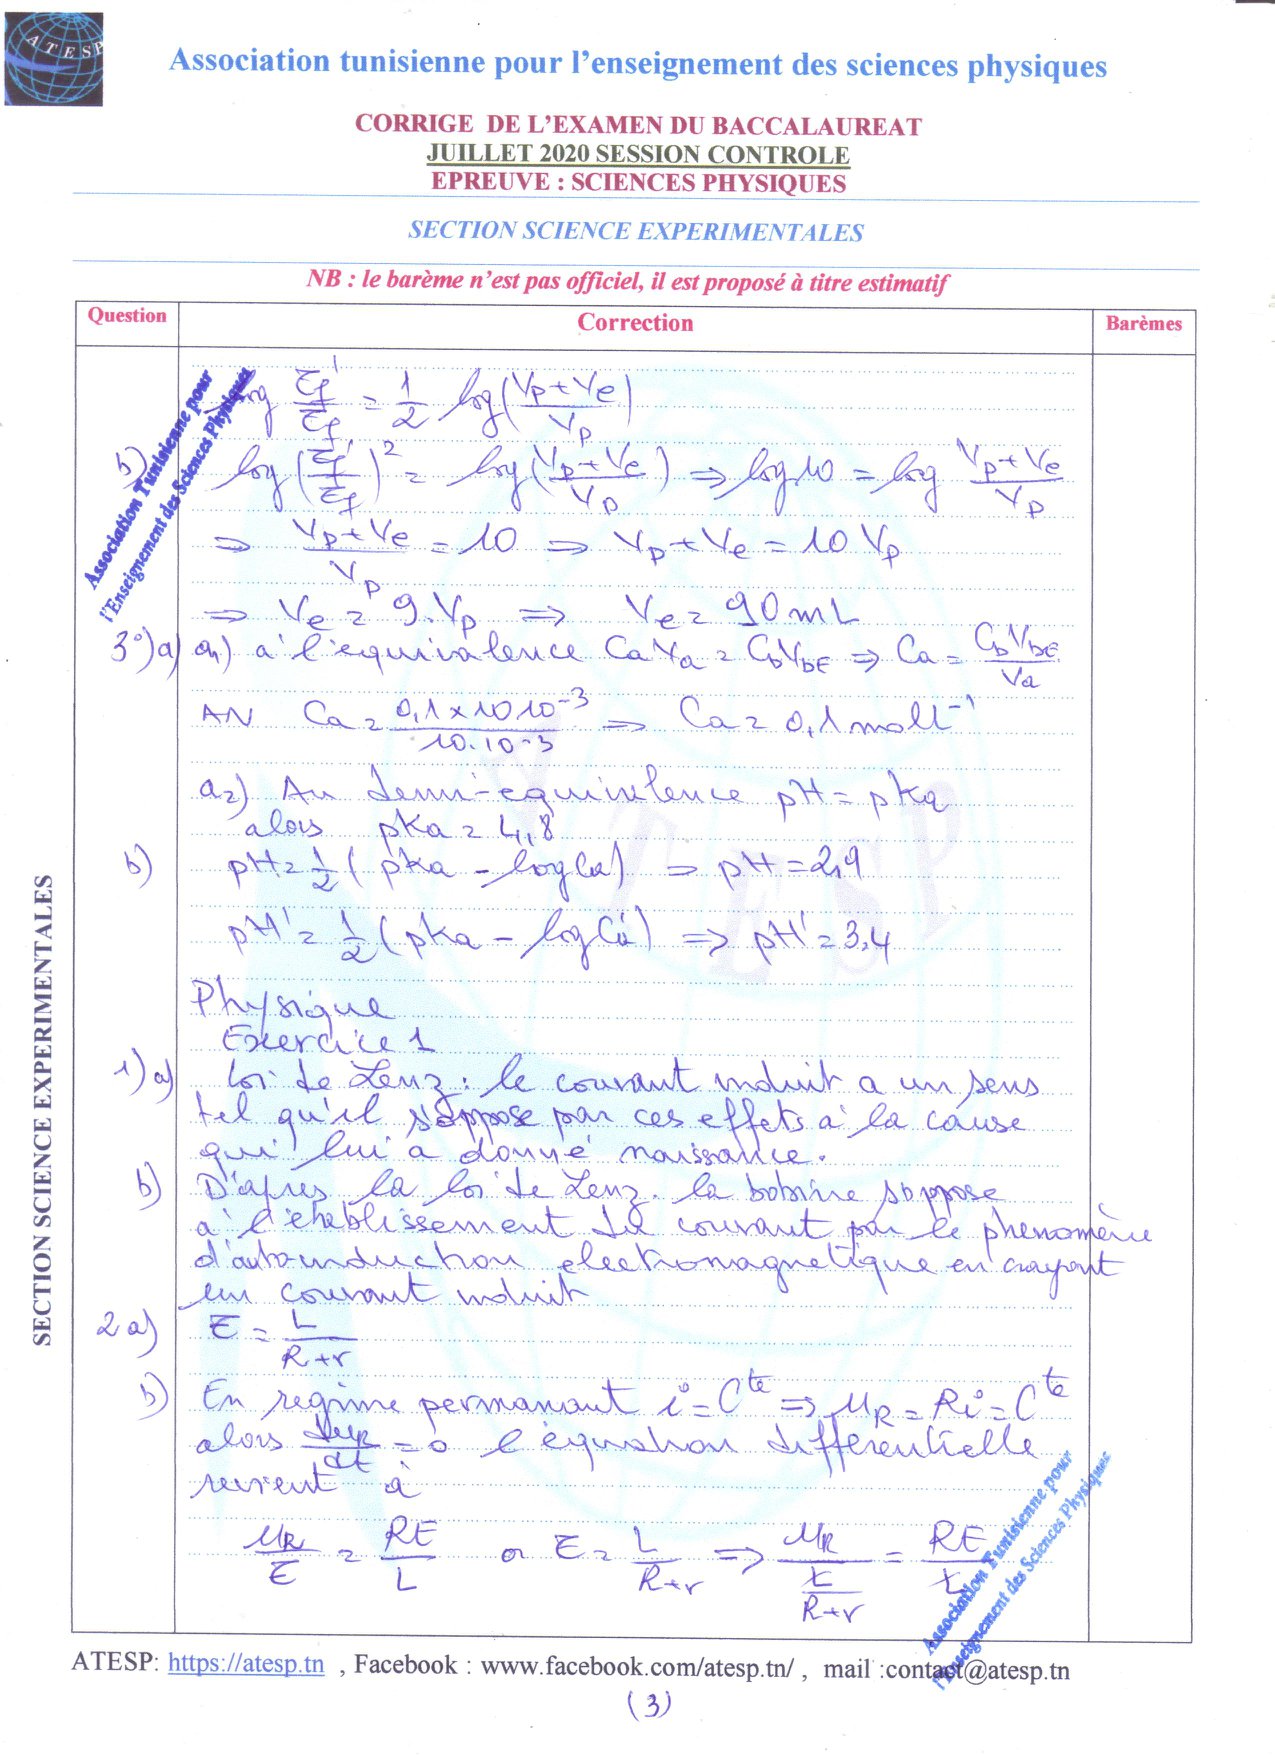 ATESP
Association tunisienne pour l'enseignement des sciences physiques
CORRIGE DE L'EXAMEN DU BACCALAUREAT
JUILLET 2020 SESSION CONTROLE
EPREUVE : SCIENCES PHYSIQUES
SECTION SCIENCE EXPERIMENTALES
NB : le barème n'est pas officiel, il est proposé à titre estimatif
Question Correction Barèmes
log τf'/τf = 1/2 log(Vp+Ve/Vp)
b) log(τf'/τf)² = log(Vp+Ve/Vp) ⇒ log10 = log Vp+Ve/Vp
⇒ Vp+Ve/Vp = 10 ⇒ Vp+Ve = 10 Vp
⇒ Ve = 9.Vp ⇒ Ve = 90 mL
3°)a) a1) à l'équivalence CaVa = CbVbE ⇒ Ca = CbVbE/Va
AN Ca = 0,1×10 10⁻³/10.10⁻³ ⇒ Ca = 0,1 molL⁻¹
a2) Au demi-équivalence pH = pKa
alors pKa = 4,8
b) pH = 1/2 (pKa - logCa) ⇒ pH = 2,9
pH' = 1/2 (pKa - logCa') ⇒ pH' = 3,4
Physique
Exercice 1
1)a) Loi de Lenz : le courant induit a un sens
tel qu'il s'oppose par ces effets à la cause
qui lui a donné naissance.
b) D'après la loi de Lenz. la bobine s'oppose
à l'établissement du courant par le phenomène
d'auto-induction electromagnetique en crayant
un courant induit
2a) τ = L/R+r
b) En regime permanant i = Cte ⇒ uR = Ri = Cte
alors duR/dt = 0 l'équation différentielle
revient à
uR/τ = RE/L or τ = L/R+r ⇒ uR/(L/R+r) = RE/L
Association Tunisienne pour
l'Enseignement des Sciences Physiques
Association Tunisienne pour
l'Enseignement des Sciences Physiques
SECTION SCIENCE EXPERIMENTALES
ATESP: https://atesp.tn , Facebook : www.facebook.com/atesp.tn/ , mail :contact@atesp.tn
(3)